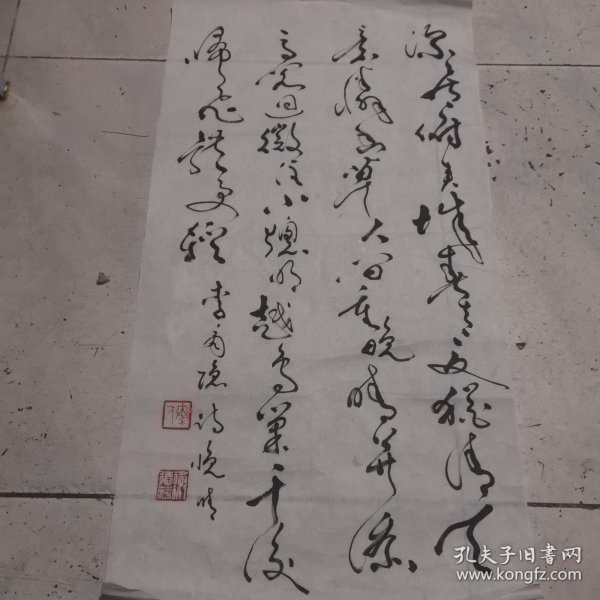 深居俯夹城春去夏猶清天
意憐幽草人间重晚晴并添
高阁迥微注小窗明越鸟巢干后
歸飛體更輕 李商隐诗晚晴
孔夫子旧书网
www.kongfz.com